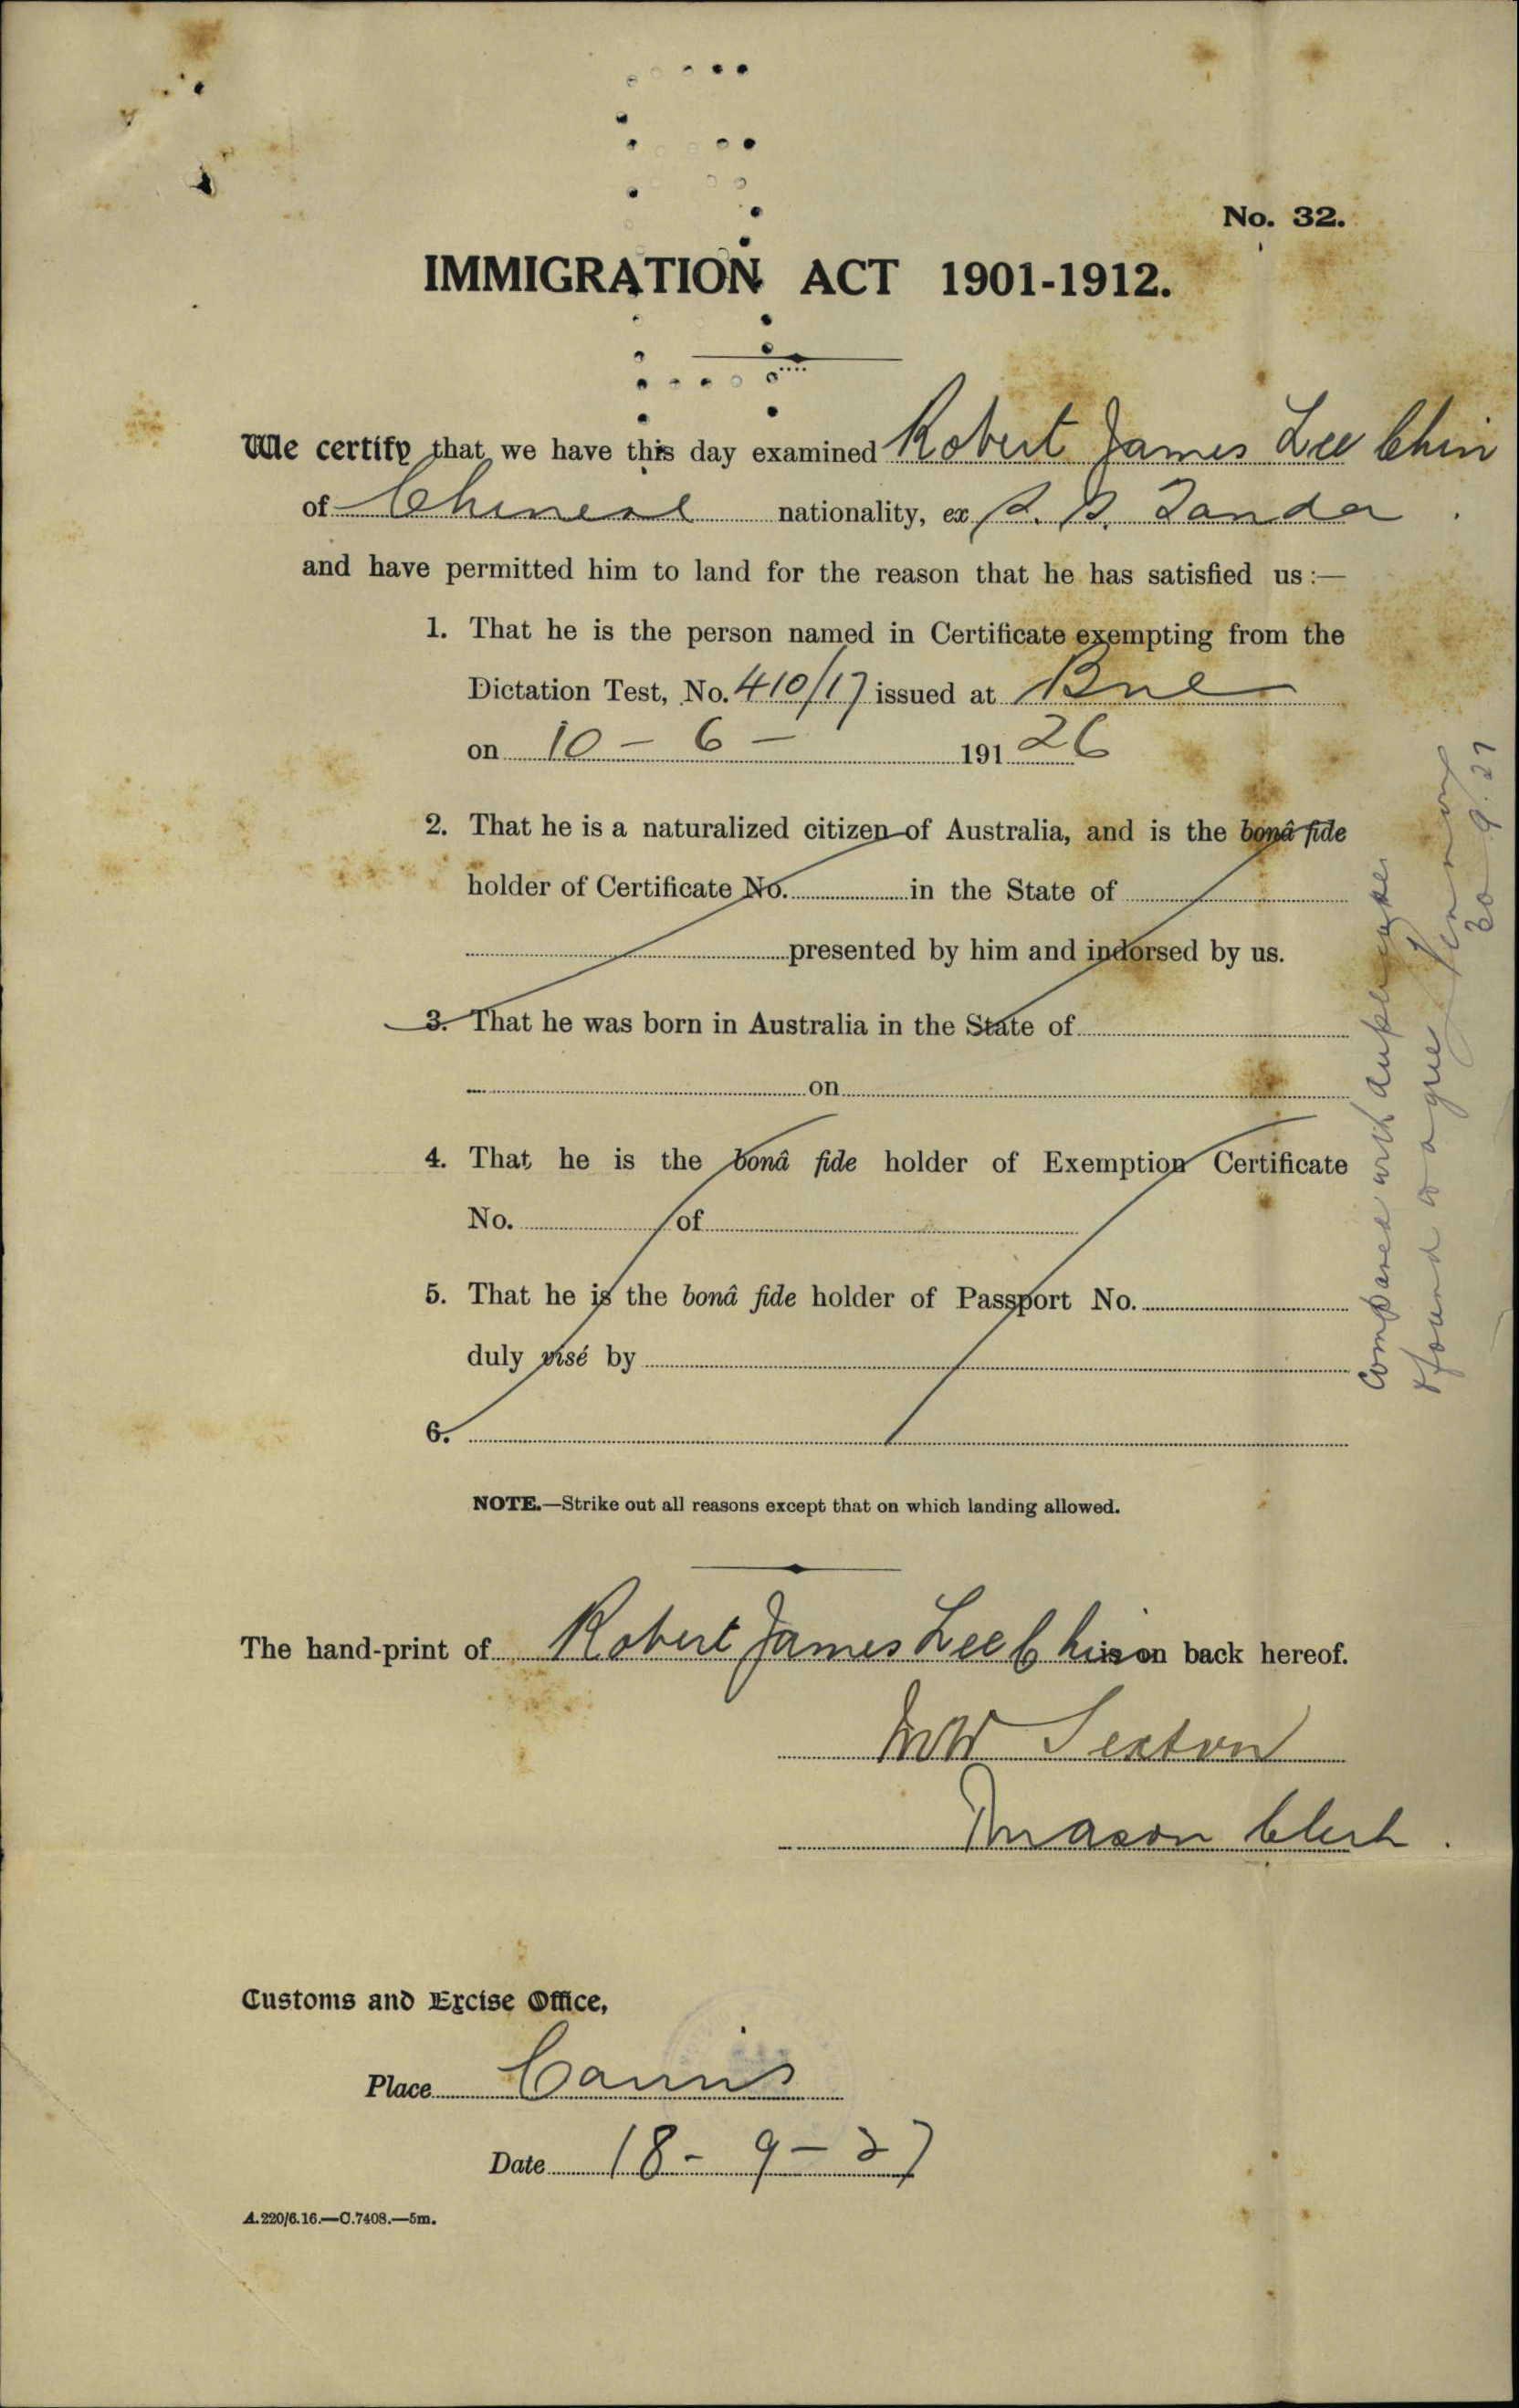 No. 32.
IMMIGRATION ACT 1901-1912.
We certify that we have this day examined Robert James Lee Chin
of Chinese nationality, ex S. S. Tanda.
and have permitted him to land for the reason that he has satisfied us:—
1. That he is the person named in Certificate exempting from the
Dictation Test, No. 410/17 issued at Bne
on 10 – 6 – 191 26
2. That he is a naturalized citizen of Australia, and is the bonâ fide
holder of Certificate No. in the State of
presented by him and indorsed by us.
3. That he was born in Australia in the State of
on
4. That he is the bonâ fide holder of Exemption Certificate
No. of
5. That he is the bonâ fide holder of Passport No.
duly visé by
6.
NOTE.—Strike out all reasons except that on which landing allowed.
The hand-print of Robert James Lee Chin is on back hereof.
Sexton
Mason Clerk.
Customs and Excise Office,
Place Cairns
Date 18 - 9 - 27
A.220/6.16.—C.7408.—5m.
Compared with duplicate
& found to agree
20.9.27